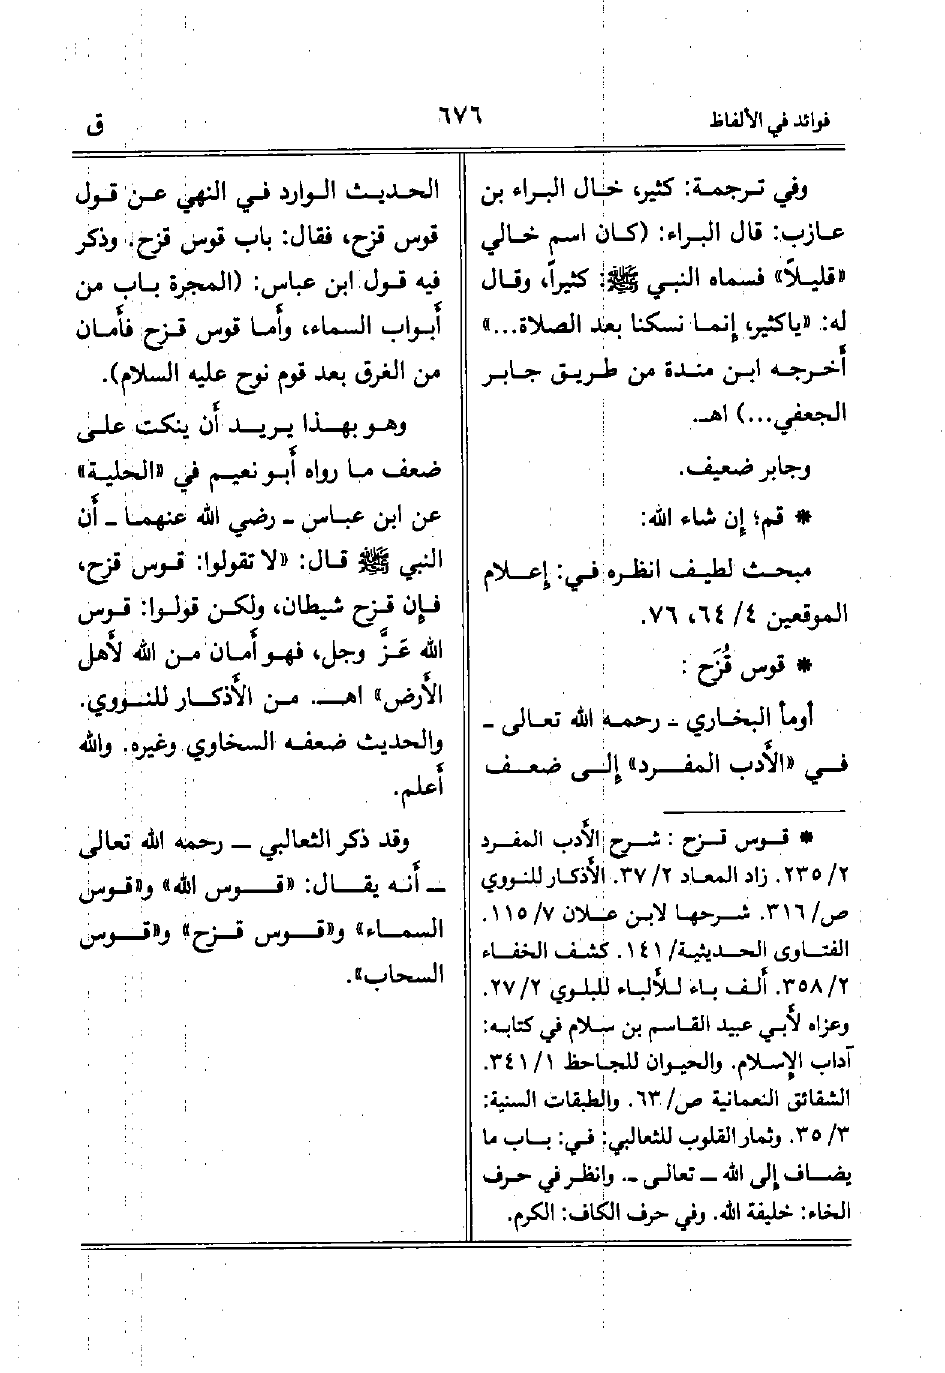 فوائد في الألفاظ ٦٧٦ ق
وفي ترجمة: كثير، خال البراء بن
عازب: قال البراء: (كان اسم خالي
«قليلاً» فسماه النبي ﷺ: كثيراً، وقال
له: «ياكثير، إنما نسكنا بعد الصلاة...»
أخرجه ابن مندة من طريق جابر
الجعفي...) اهـ.
وجابر ضعيف.
* قم؛ إن شاء الله:
مبحث لطيف انظره في: إعلام
الموقعين ٤/ ٦٤، ٧٦.
* قوس قُزَح :
أومأ البخاري - رحمه الله تعالى -
في «الأدب المفرد» إلى ضعف
* قوس قزح : شرح الأدب المفرد
٢/ ٢٣٥. زاد المعاد ٢/ ٣٧. الأذكار للنووي
ص/ ٣١٦. شرحها لابن علان ٧/ ١١٥.
الفتاوى الحديثية/ ١٤١. كشف الخفاء
٢/ ٣٥٨. ألف باء للألباء للبلوي ٢/ ٢٧.
وعزاه لأبي عبيد القاسم بن سلام في كتابه:
آداب الإسلام. والحيوان للجاحظ ١/ ٣٤١.
الشقائق النعمانية ص/ ٦٣. والطبقات السنية:
٣/ ٣٥. وثمار القلوب للثعالبي: في: باب ما
يضاف إلى الله - تعالى -. وانظر في حرف
الخاء: خليفة الله. وفي حرف الكاف: الكرم.
الحديث الوارد في النهي عن قول
قوس قزح، فقال: باب قوس قزح. وذكر
فيه قول ابن عباس: (المجرة باب من
أبواب السماء، وأما قوس قزح فأمان
من الغرق بعد قوم نوح عليه السلام).
وهو بهذا يريد أن ينكت على
ضعف ما رواه أبو نعيم في «الحلية»
عن ابن عباس - رضي الله عنهما - أن
النبي ﷺ قال: «لا تقولوا: قوس قزح،
فإن قزح شيطان، ولكن قولوا: قوس
الله عَزَّ وجل، فهو أمان من الله لأهل
الأرض» اهـ. من الأذكار للنووي.
والحديث ضعفه السخاوي وغيره. والله
أعلم.
وقد ذكر الثعالبي - رحمه الله تعالى
- أنه يقال: «قوس الله» و«قوس
السماء» و«قوس قزح» و«قوس
السحاب».